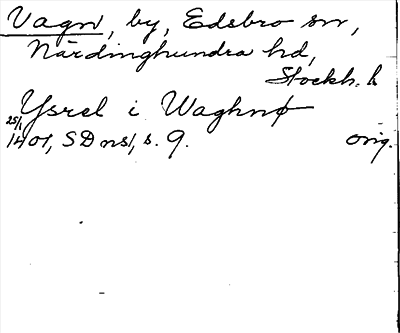 Vagn, by, Edsbro sn,
Närdinghundra hd,
Stockh. l
Ysrel i Waghnø
25/1 1401, SD ns1, s. 9. orig.